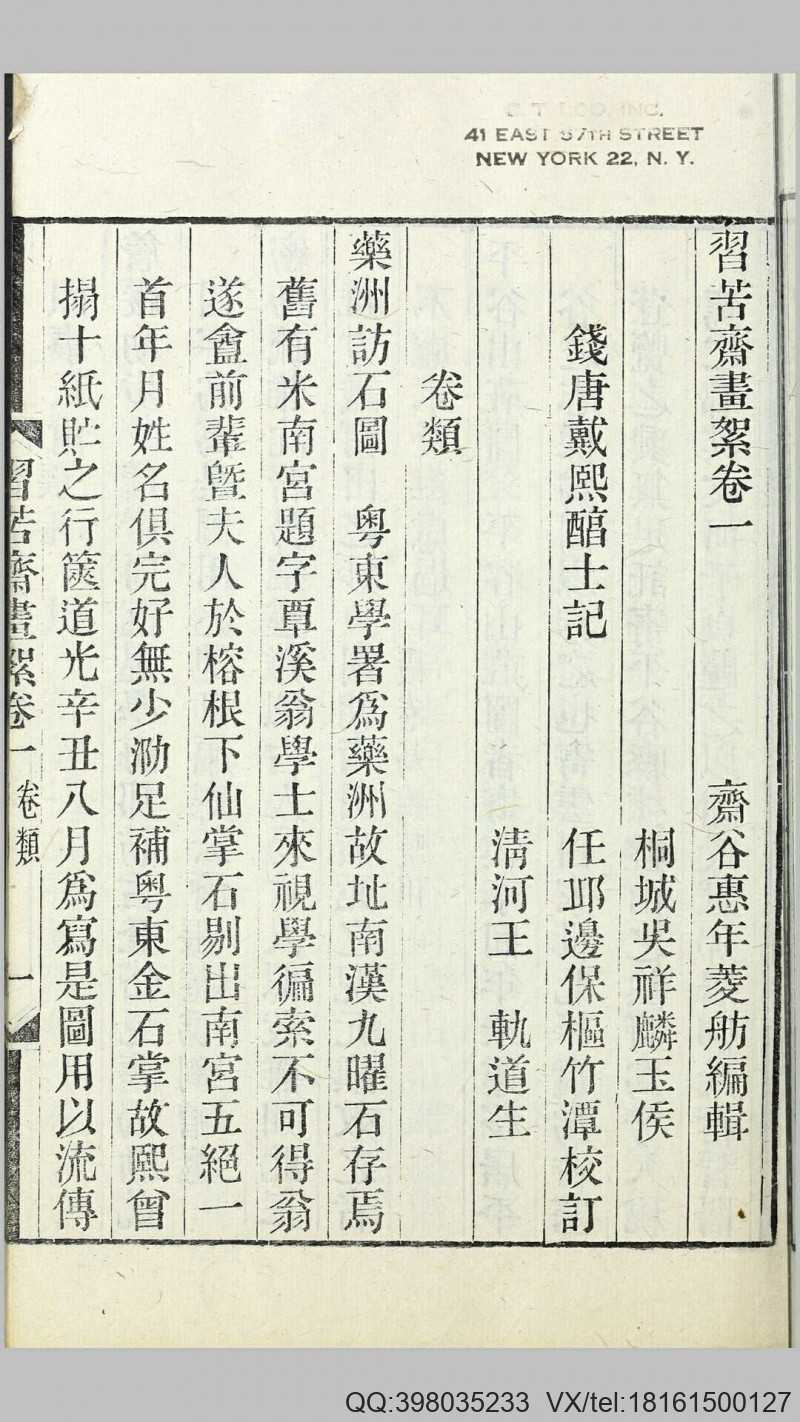 41 EAST 57TH STREET
NEW YORK 22, N. Y.
習苦齋畫絮卷一
齋谷惠年菱舫編輯
桐城吳祥麟玉侯
錢唐戴熙醕士記
任邱邊保樞竹潭校訂
清河王 軌道生
卷類
藥洲訪石圖 粤東學署爲藥洲故址南漢九曜石存焉
舊有米南宮題字覃溪翁學士來視學徧索不可得翁
遂盦前輩曁夫人於榕根下仙掌石剔出南宮五絕一
首年月姓名俱完好無少泐足補粤東金石掌故熙曾
搨十紙貯之行篋道光辛丑八月爲寫是圖用以流傳
習苦齋畫絮卷一 卷類 一
QQ:398035233 VX/tel:18161500127